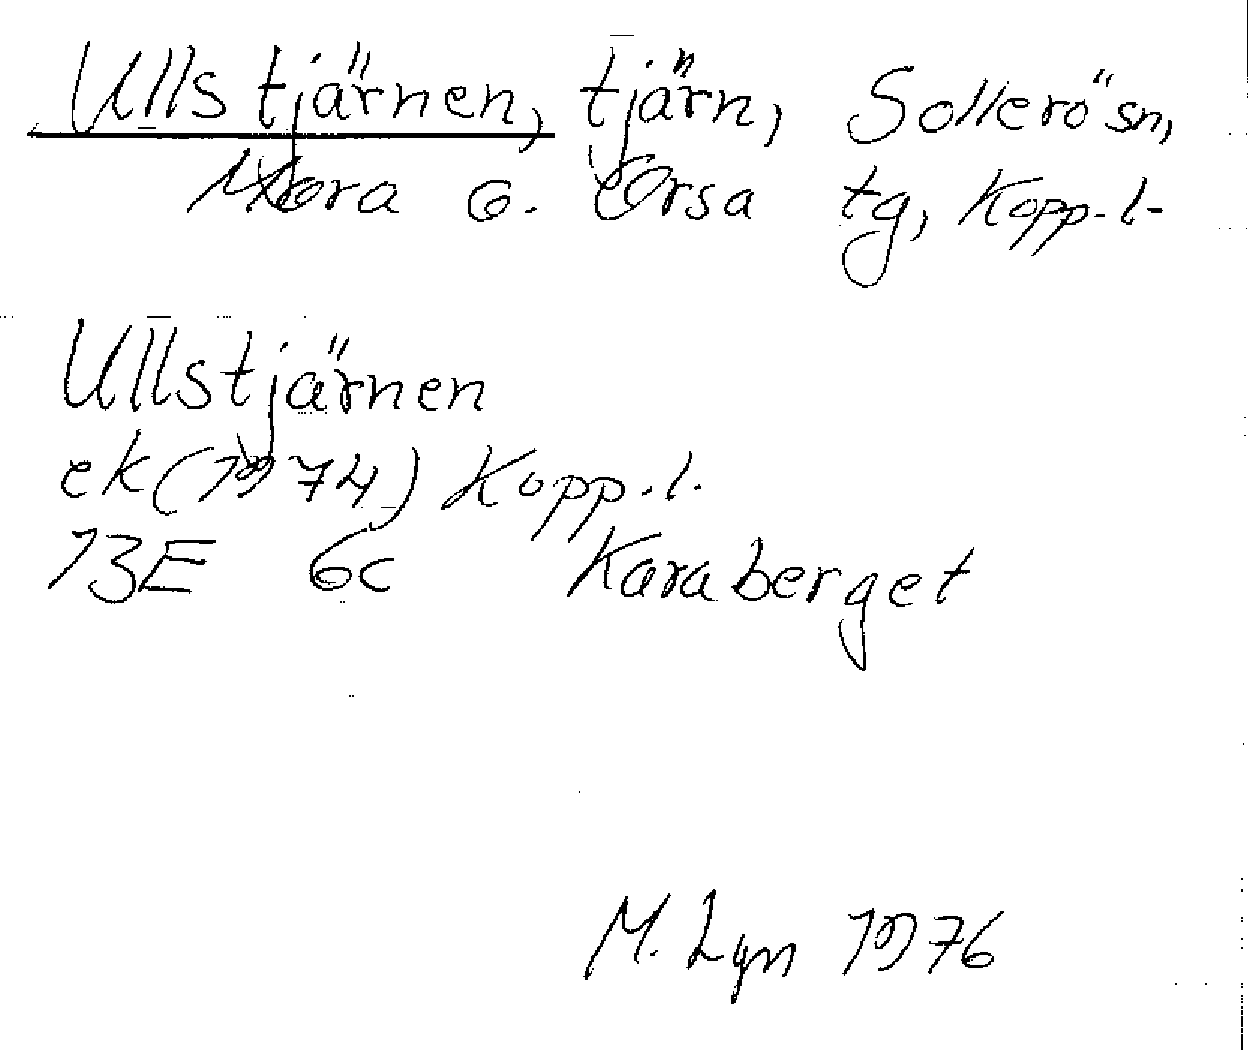 Ullstjärnen, tjärn, Sollerö sn,
Mora o. Orsa tg, Kopp. l.
Ullstjärnen
ek (1974) Kopp. l.
13E 6c Karaberget
M. Lyn 1976